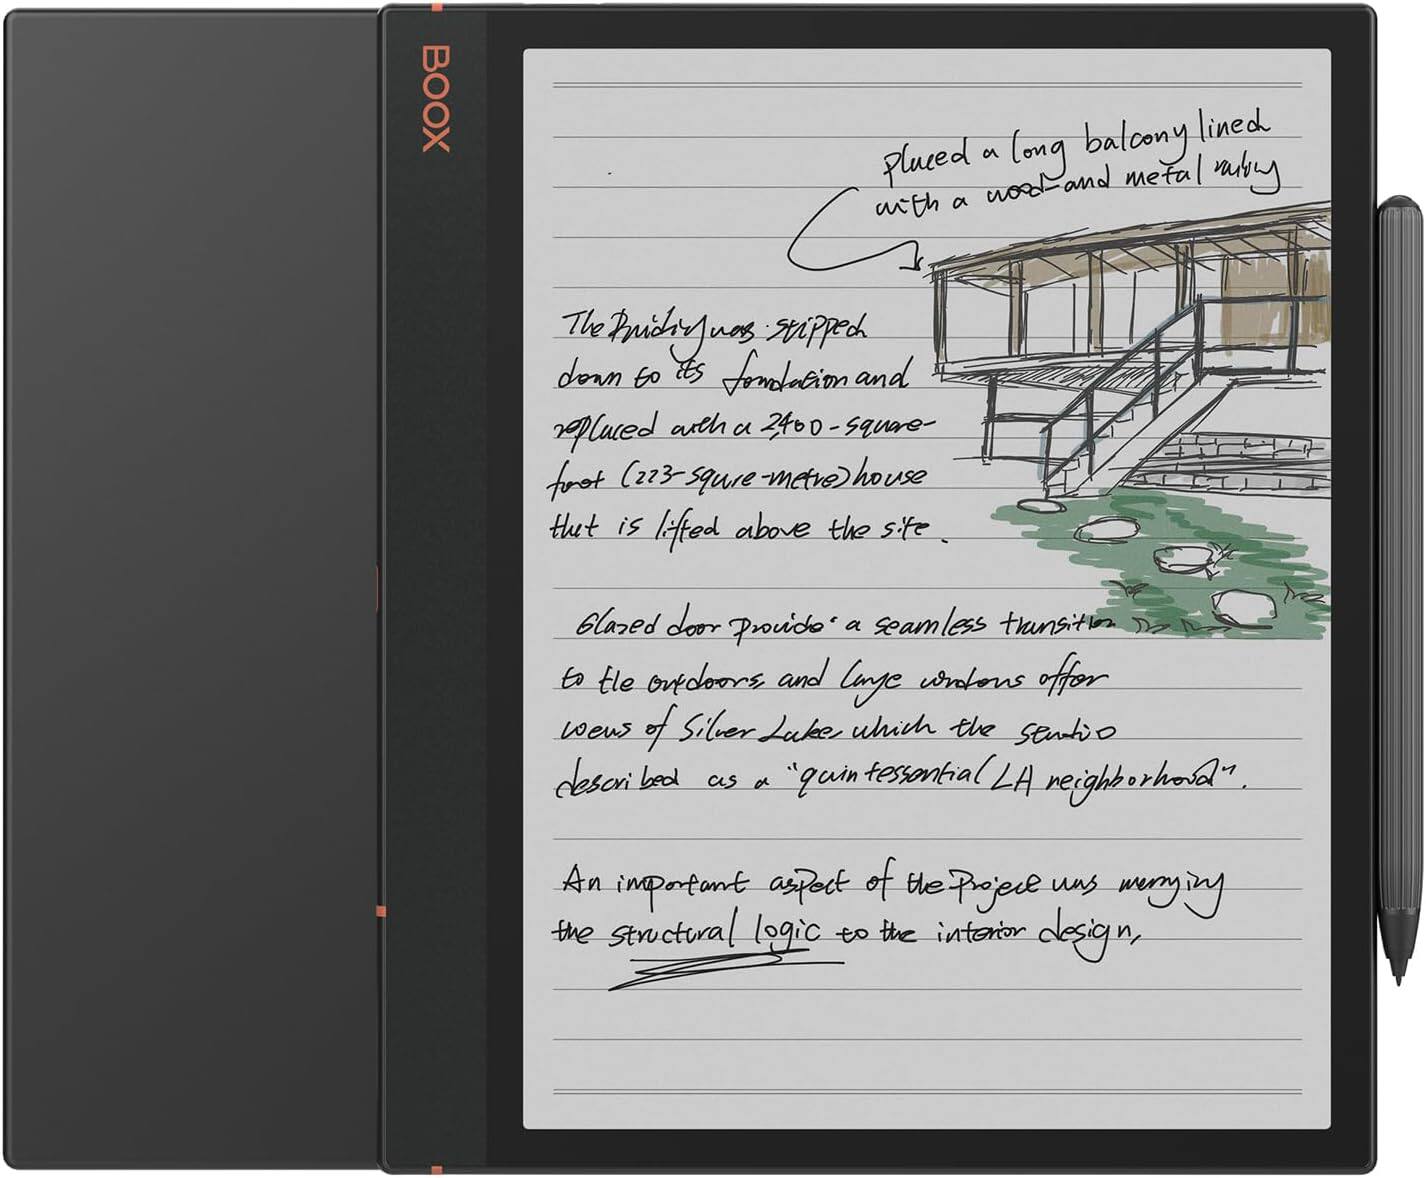 BOOX
placed a long balcony lined
with a wood-and metal railing
The Building was stripped
down to its foundation and
replaced with a 2,400-square-
foot (223-squre-metre) house
that is lifted above the site.
Glazed door provide a seamless transition
to the outdoors, and large windows offer
views of Silver Lake, which the studio
described as a "quintessential LA neighborhood".
An important aspect of the Project was merrying
the structural logic to the interior design,